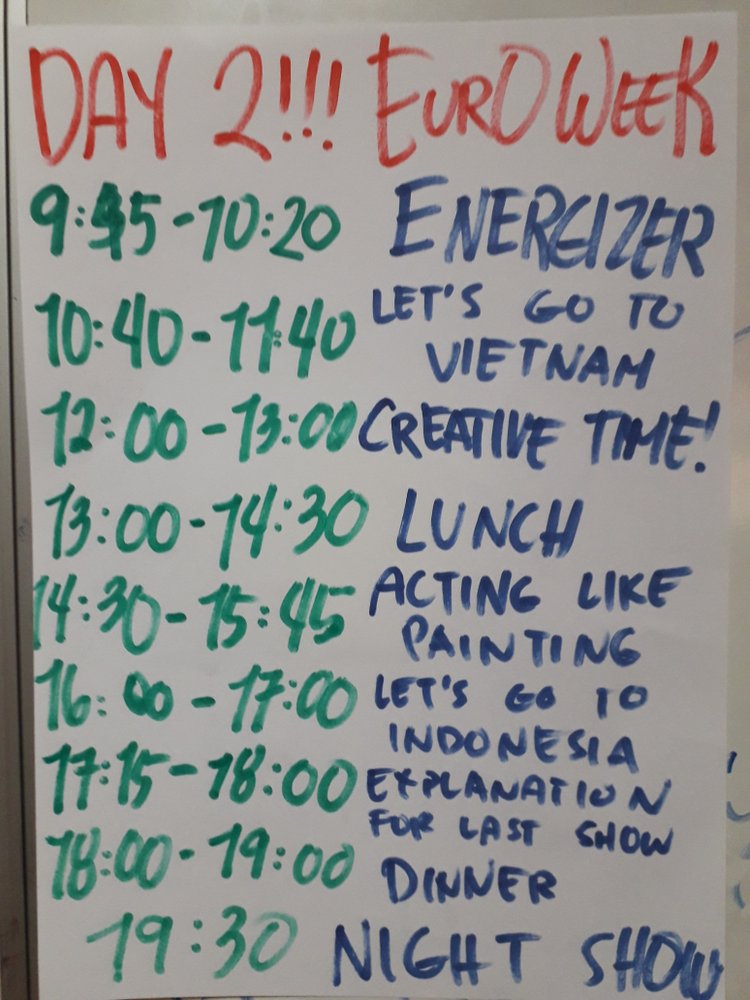 DAY 2!!! EUROWEEK
9:45-10:20 ENERGIZER
10:40-11:40 LET'S GO TO
VIETNAM
12:00-13:00 CREATIVE TIME!
13:00-14:30 LUNCH
14:30-15:45 ACTING LIKE
PAINTING
16:00-17:00 LET'S GO TO
INDONESIA
17:15-18:00 EXPLANATION
FOR LAST SHOW
18:00-19:00 DINNER
19:30 NIGHT SHOW